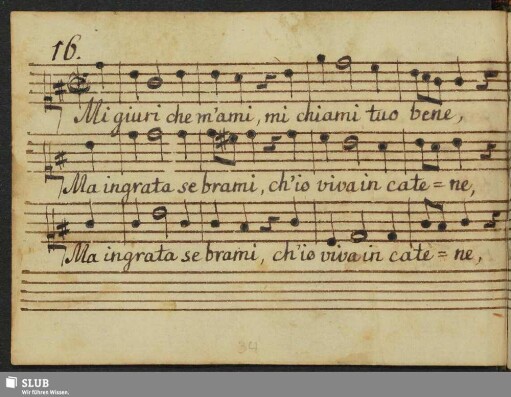 16.
Mi giuri che m'ami, mi chiami tuo bene,
Ma ingrata se brami, ch'io viva in cate=ne,
Ma ingrata se brami, ch'io viva in cate=ne,
34
SLUB
Wir führen Wissen.